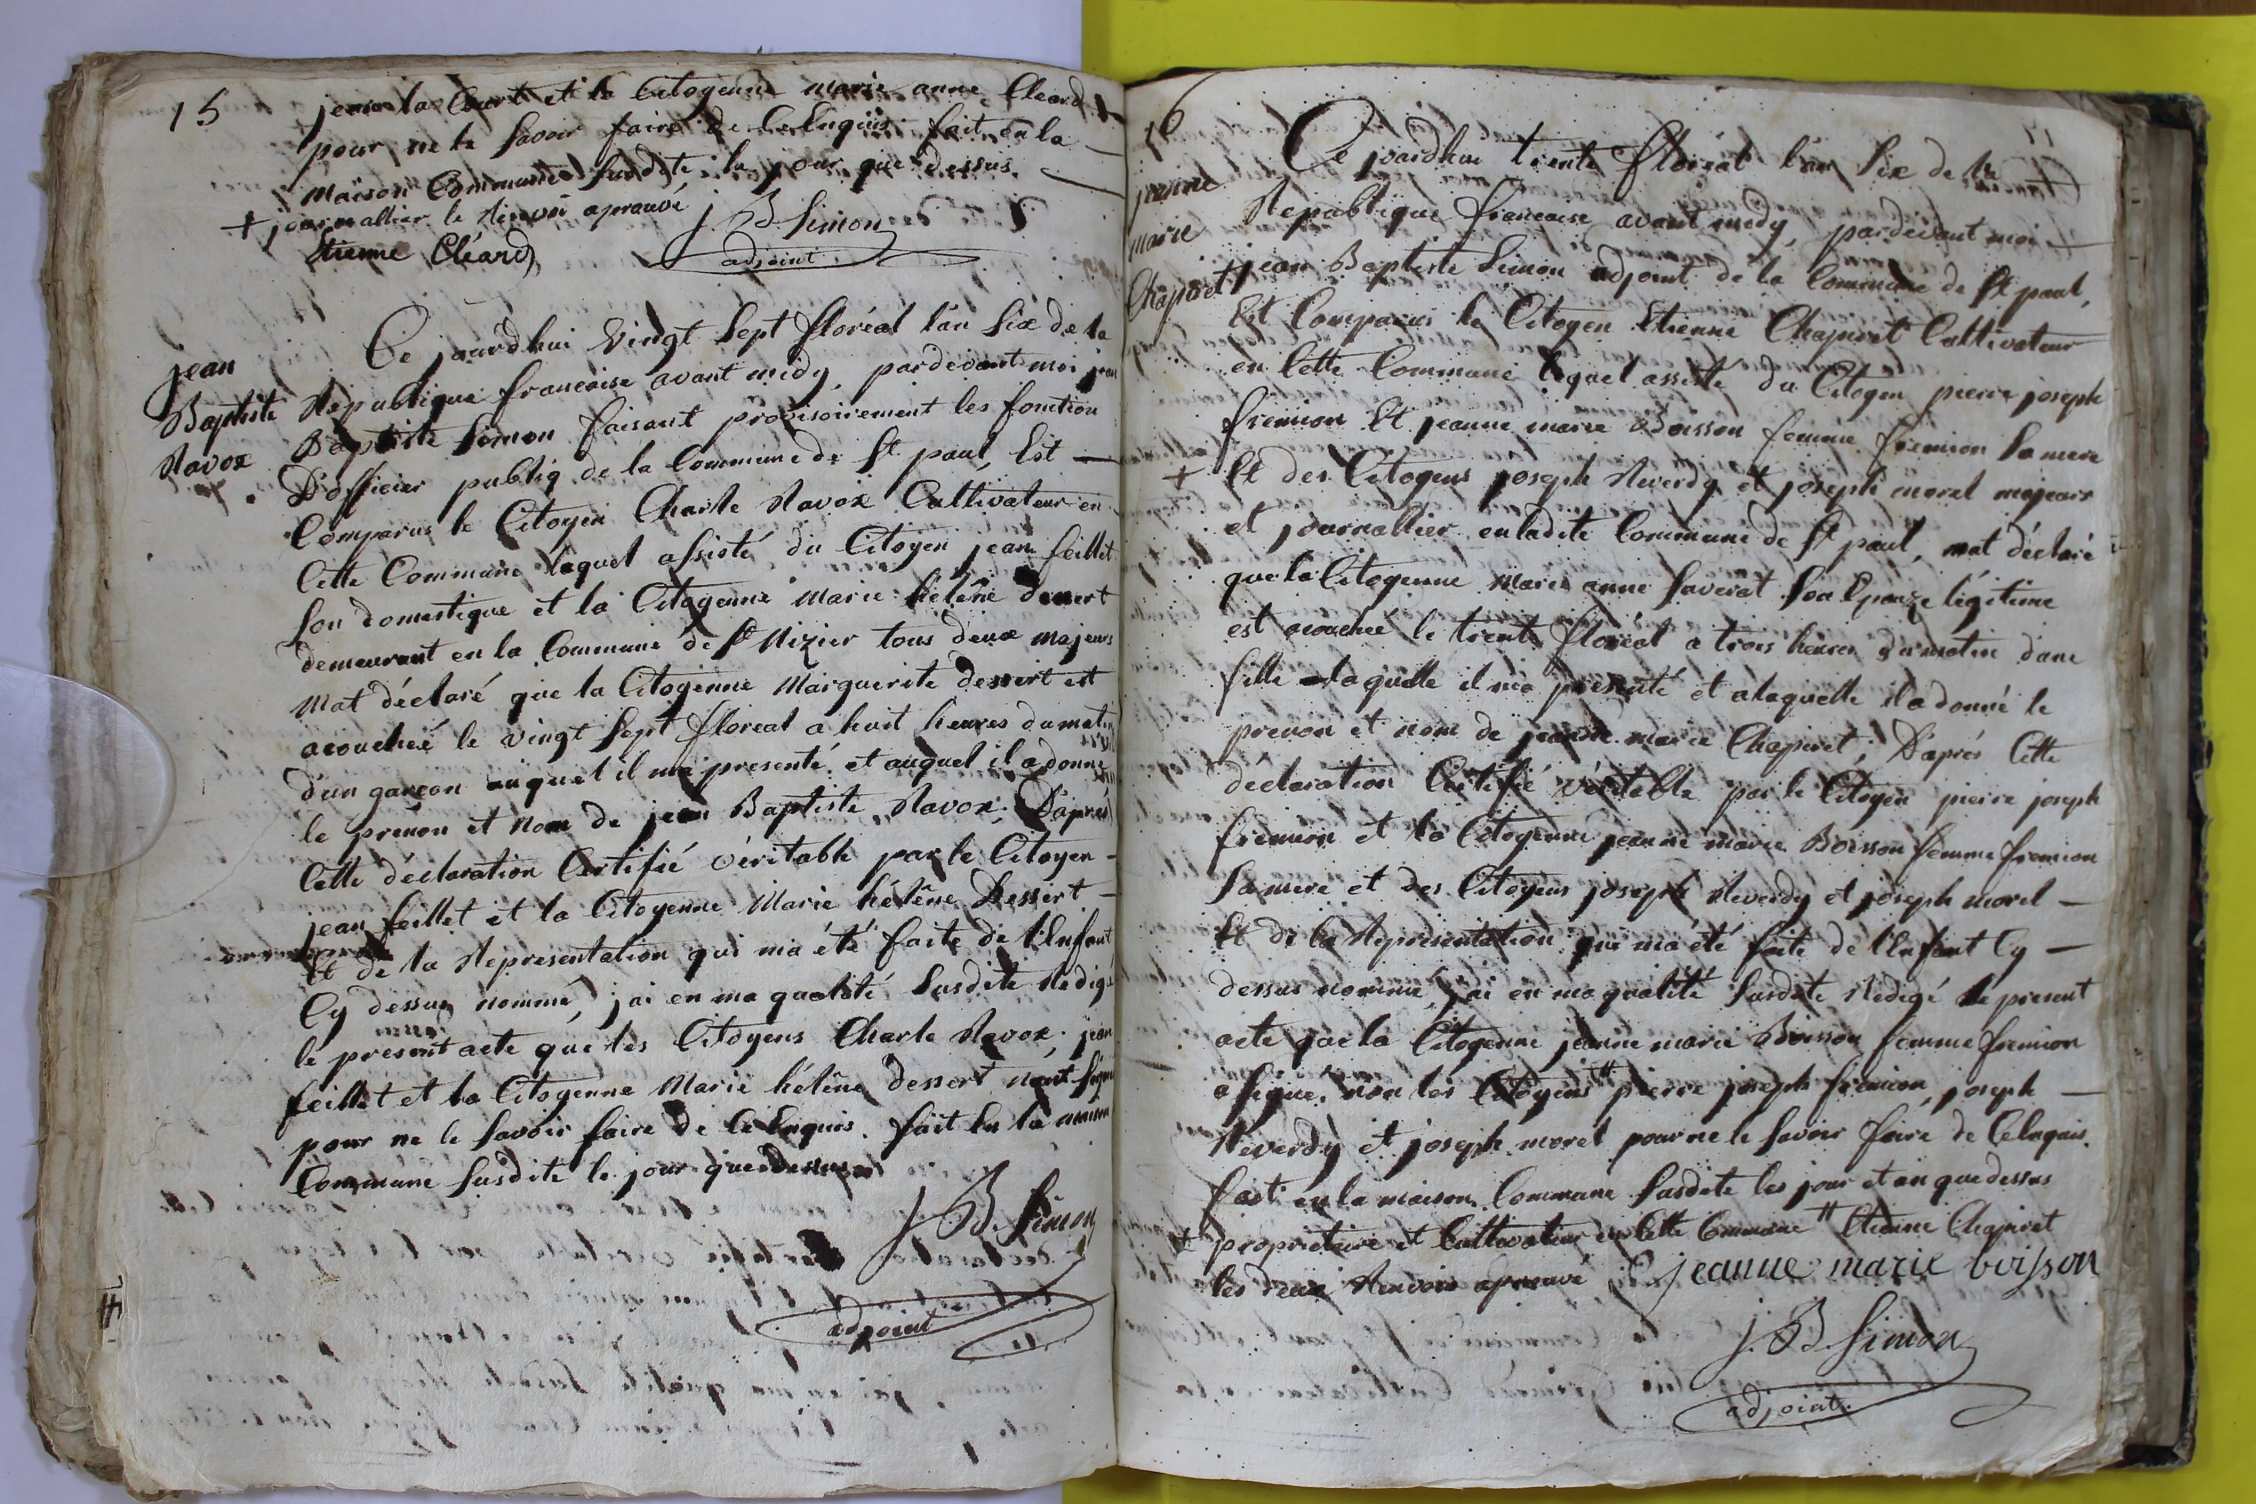 15
jean la Court et la Citoyenne marie anne Cleard
pour ne le Savoir faire de Ce Enquis. fait en la
maison Commune Susdite le jour que dessus.
+ journallier le renvoi aprouvé
Etienne Cléard
J. B. Simon
adjoint
jean
Baptiste
Ravox
Ce jourdhui vingt Sept floréal l'an Six de la
Republique francaise avant midy, pardevant moi jean
Baptiste Simon faisant provisoirement les fonction
D'officier publiq de la Commune de St paul, Est
Comparus le Citoyen Charle Ravox Cultivateur en
Cette Commune lequel assisté du Citoyen jean feillet
Son domestique et la Citoyenne Marie héléne dessert
demeurant en la Commune de St Nizier tous deux majeurs
mat déclaré que la Citoyenne Marguerite dessert est
acouchéé le vingt Sept floreal a huit heures du matin
d'un garçon auquel il ma presenté et auquel il a donné
le prenon et nom de jean Baptiste Ravox, D'aprés
Cette déclaration Certifié véritable par le Citoyen
jean feillet et la Citoyenne Marie héléne Dessert
Et de la Representation qui ma été faite de l'Enfant
Cy dessus nommé, jai en ma qualité Susdite Redigé
le present acte que les Citoyens Charle Ravox, jean
feillet et la Citoyenne Marie héléne dessert nont Signé
pour ne le Savoir faire de Ce Enquis. fait En la
Commune Susdite le jour que dessus
J. B. Simon
adjoint
16
jeanne
marie
Chapiret
Ce jourdhui trente floréal l'an Six de la
Republique francaise avant midy, pardevant moi
jean Baptiste Simon adjoint de la Commune de St paul,
Est Comparus le Citoyen Etienne Chapiret Cultivateur
en Cette Commune lequel assisté du Citoyen pierre joseph
fremion Et jeanne marie Boisson femme fremion Sa mere
+ Et des Citoyens joseph Reverdy et joseph morel majeurs
et journallier en ladite Commune de St paul, mat déclaré
que la Citoyenne Marie anne Saverat Son Epouze légitime
est acouchéé le trente floréal a trois heures du matin dune
fille a laquelle il ma presenté et alaquelle il a donné le
prenon et nom de jeanne marie Chapiret; D'aprés Cette
déclaration Certifié véritable par le Citoyen pierre joseph
fremion et la Citoyenne jeanne marie Boisson femme fremion
Sa mere et des Citoyens joseph Reverdy et joseph morel
Et de la Representation qui ma été faite de l'Enfant Cy
dessus nommé, jai en ma qualité Susdite Redigé le present
acte que la Citoyenne jeanne marie Boisson femme fremion
a signé, non les Citoyens # pierre joseph fremion, joseph
Reverdy et joseph morel pour ne le Savoir faire de Ce Enquis.
fait en la maison Commune Susdite les jour et an que dessus
+ proprietaire et Cultivateur en Cette Commune # Etienne Chapiret
les deux Renvois aprouvé
jeanne marie boisson
J. B. Simon
adjoint.